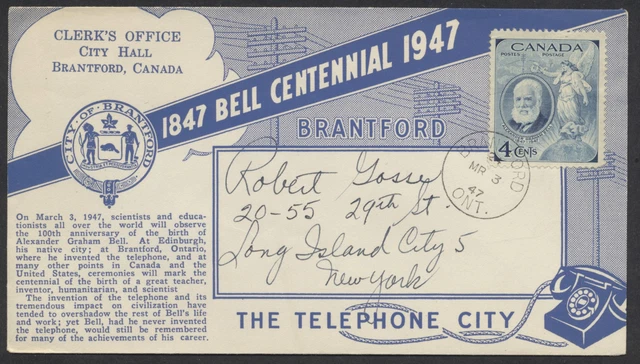 CLERK'S OFFICE
CITY HALL
BRANTFORD, CANADA
1847 BELL CENTENNIAL 1947
CANADA
POSTES POSTAGE
4 CENTS
CITY OF BRANTFORD
BRANTFORD
BRANTFORD
MR 3
47
ONT.
Robert Gosse
20-55 29th St.
Long Island City 5
New York
On March 3, 1947, scientists and educa-
tionists all over the world will observe
the 100th anniversary of the birth of
Alexander Graham Bell. At Edinburgh,
his native city; at Brantford, Ontario,
where he invented the telephone, and at
many other points in Canada and the
United States, ceremonies will mark the
centennial of the birth of a great teacher,
inventor, humanitarian, and scientist
The invention of the telephone and its
tremendous impact on civilization have
tended to overshadow the rest of Bell's life
and work; yet Bell, had he never invented
the telephone, would still be remembered
for many of the achievements of his career.
THE TELEPHONE CITY